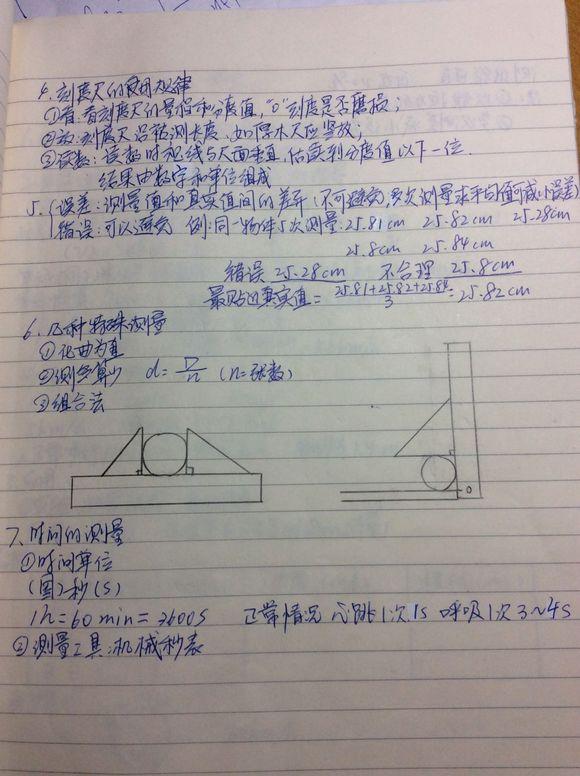 4. 刻度尺的使用规律
①看:看刻度尺的量程和分度值,"0"刻度是否磨损;
②放:刻度尺沿被测长度,如厚木尺应竖放;
③读数:读数时视线与尺面垂直,估读到分度值以下一位.
结果由数字和单位组成
5. 误差:测量值和真实值间的差异(不可避免,多次测量求平均值可减小误差)
错误:可以避免 例:同一物体5次测量:25.81cm 25.82cm 25.28cm
25.8cm 25.84cm
错误 25.28cm 不合理 25.8cm
最贴近真实值=(25.81+25.82+25.84)/3=25.82cm
6. 几种特殊测量
①化曲为直
②测多算少 d=D/n (n=球数)
③组合法
0
7、时间的测量
①时间单位
(国)秒(s)
1h=60min=3600s 正常情况 心跳1次1s 呼吸1次3~4s
②测量工具:机械秒表